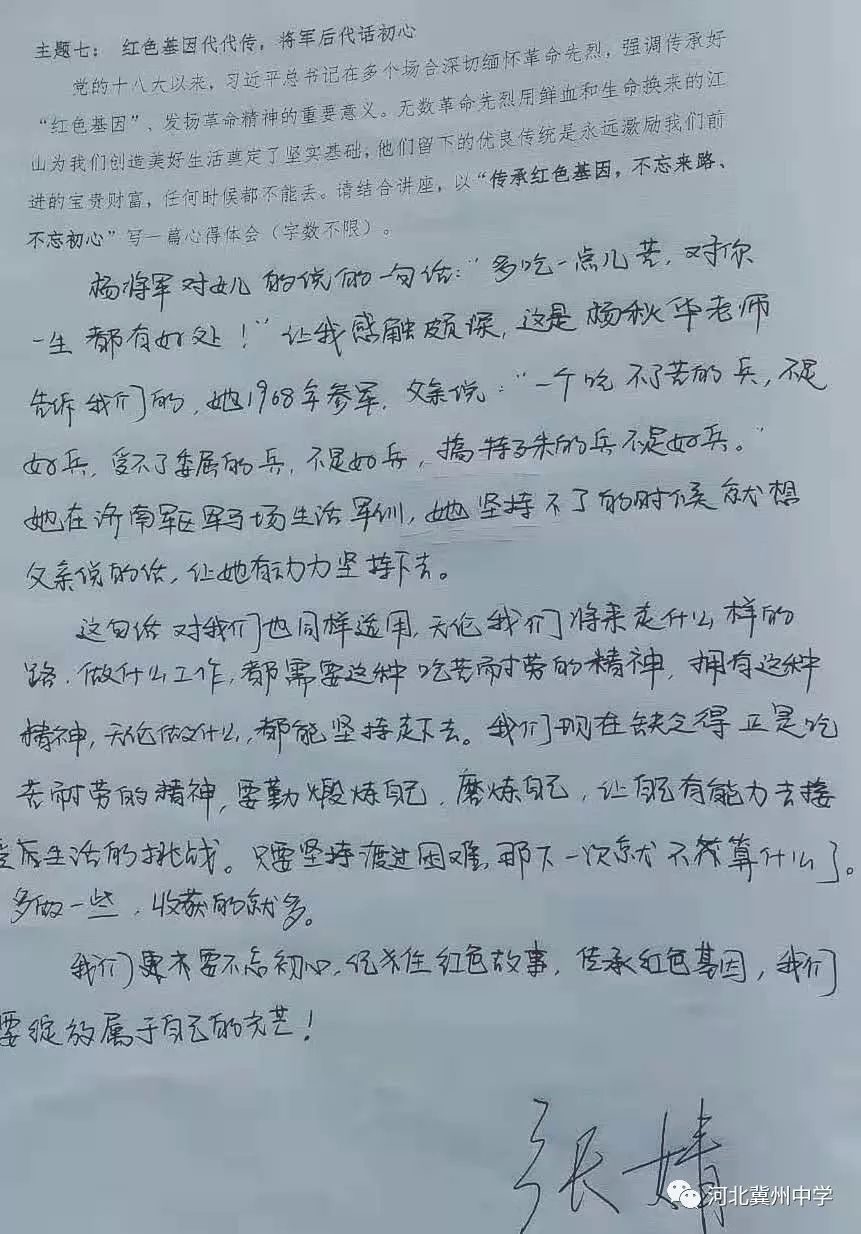 主题七： 红色基因代代传，将军后代话初心
党的十八大以来，习近平总书记在多个场合深切缅怀革命先烈，强调传承好
“红色基因”、发扬革命精神的重要意义。无数革命先烈用鲜血和生命换来的江
山为我们创造美好生活奠定了坚实基础，他们留下的优良传统是永远激励我们前
进的宝贵财富，任何时候都不能丢。请结合讲座，以“传承红色基因，不忘来路、
不忘初心”写一篇心得体会（字数不限）。
杨将军对女儿的说的一句话：“多吃一点儿苦，对你
一生都有好处！”让我感触颇深，这是杨秋华老师
告诉我们的，她1968年参军，父亲说：“一个吃不了苦的兵，不是
好兵，受不了委屈的兵，不是好兵，搞特殊的兵不是好兵。”
她在济南军区军马场生活军训，她坚持不了的时候就想
父亲说的话，让她有动力坚持下去。
这句话对我们也同样适用，无论我们将来走什么样的
路，做什么工作，都需要这种吃苦耐劳的精神，拥有这种
精神，无论做什么，都能坚持走下去。我们现在缺乏得正是吃
苦耐劳的精神，要勤锻炼自己，磨炼自己，让自己有能力去接
受后生活的挑战。只要坚持渡过困难，那下一次就不算什么了。
多做一些，收获的就多。
我们要不忘初心，红色故事，传承红色基因，我们
要绽放属于自己的光芒！
张婧
河北冀州中学